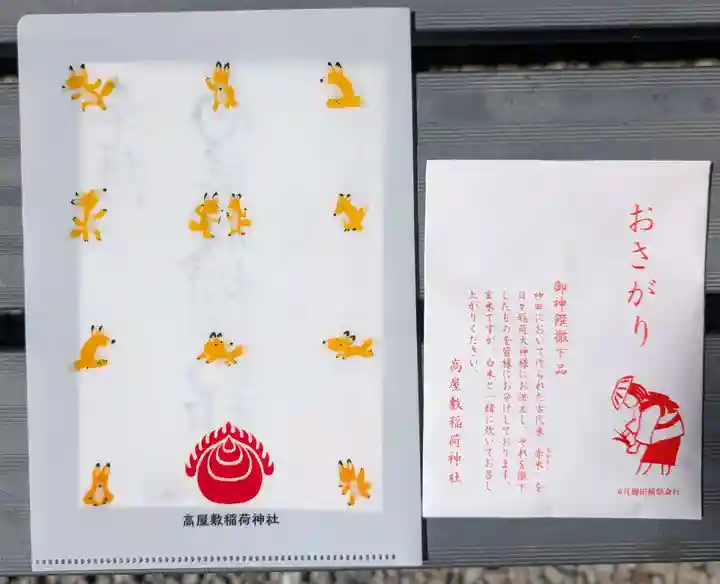 高屋敷稲荷神社
おさがり
御神饌撤下品
神田において作られた古代米 赤米 を
日々稲荷大神様にお供えし、それを撤下
したものを皆様にお分けしております。
玄米ですが、白米と一緒に炊いてお召し
上がりください
高屋敷稲荷神社